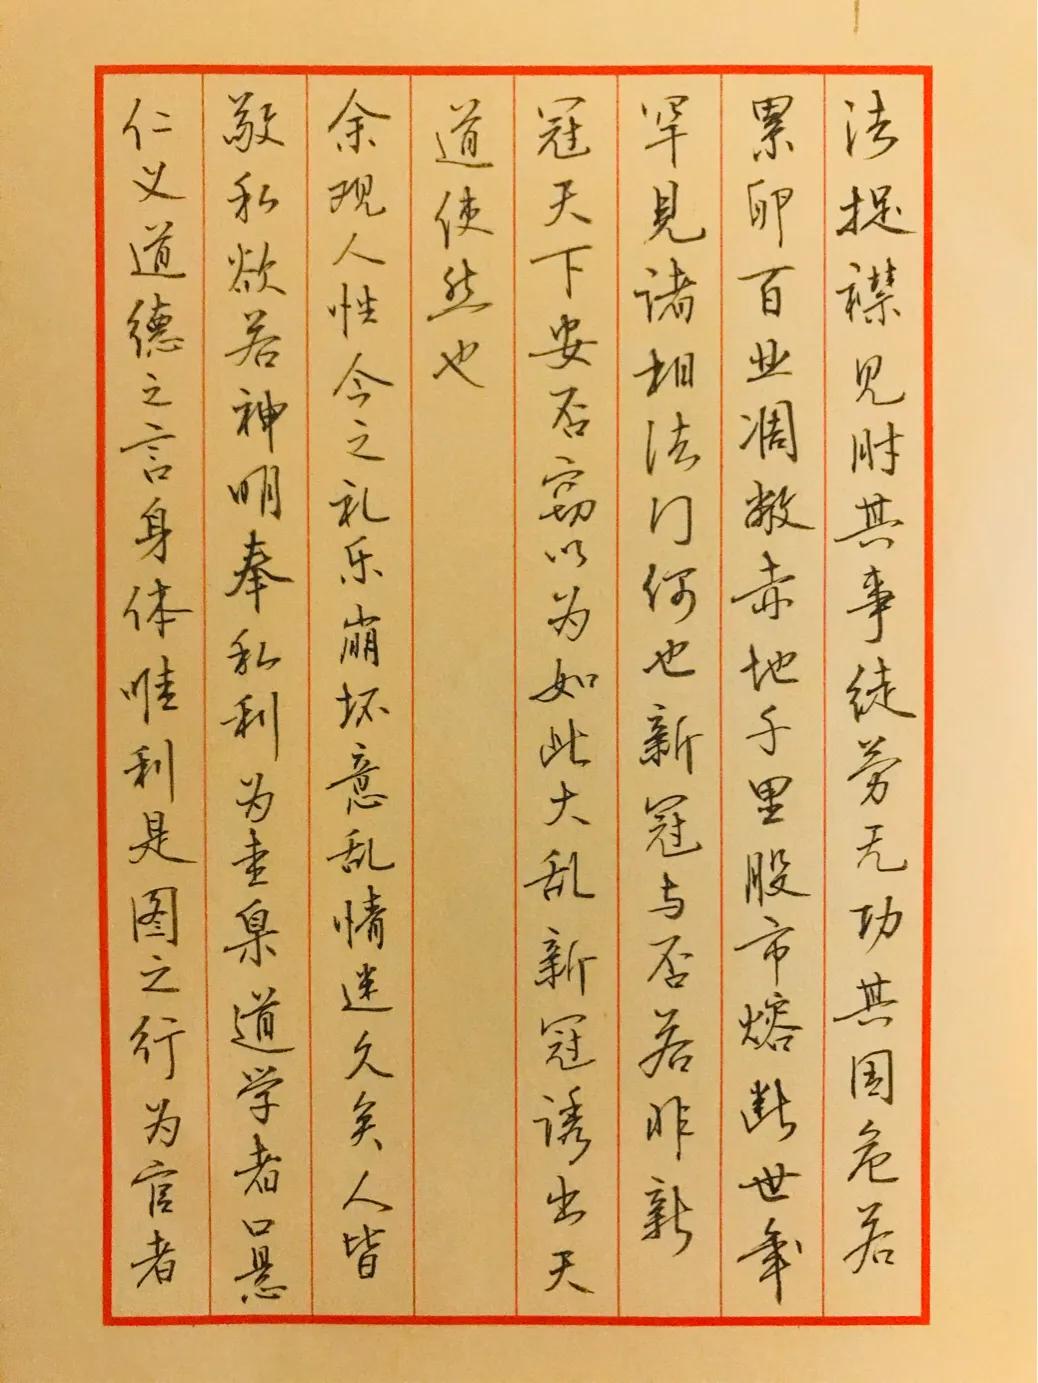 法捉襟见肘其事徒劳无功其国危若
累卵百业凋敝赤地千里股市熔断世年
罕見诸相法门何也新冠与否若非新
冠天下安否窃以为如此大乱新冠诱出天
道使然也
余观人性今之礼乐崩坏意乱情迷久矣人皆
敬私欲若神明奉私利为圭臬道学者口悬
仁义道德之言身体唯利是图之行为官者